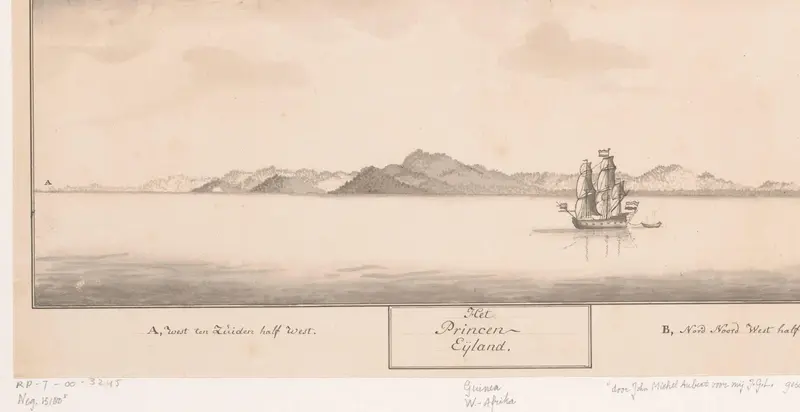 A
A, West ten Zuiden half West.
Het
Princen
Eÿland.
B, Nord Noord West half
RP-T-00-3245
Neg. 15180
Guinea
W-Afrika
"door John Michel Aubert voor mij